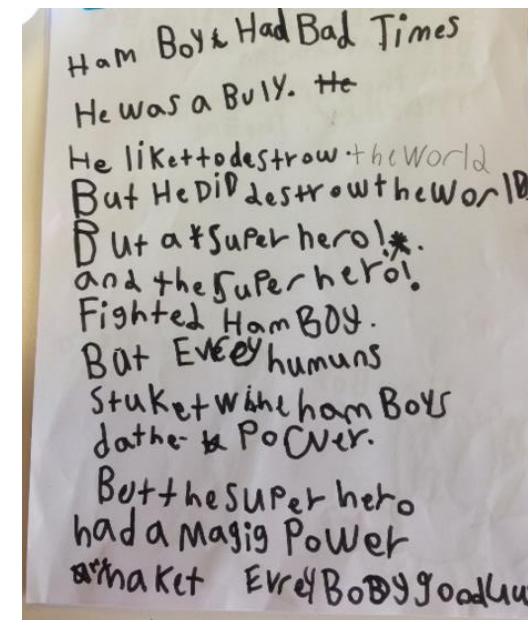 Ham Boy & Had Bad Times
He was a Buly. He
He likettodestrow.theWorld
But HeDiD destrowtheWorlD
But a *Super hero!*.
and theSuperhero!
Fighted HamBOY.
But Evrey humuns
Stuket ham Boys
dathe- PoCver.
ButtheSuper hero
had a Magig Power
maket EvreyBoDy good